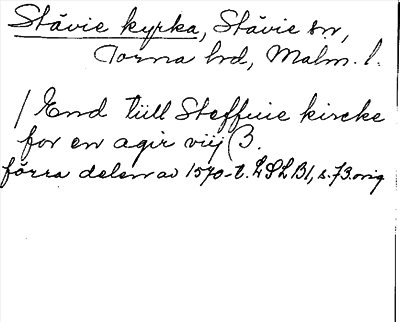 Stävie kyrka, Stävie sn,
Torna hd, Malm. l.
/ End till Steffuie kircke
for en agir viij β.
förra delen av 1570-t. LSLB1, s.73.orig